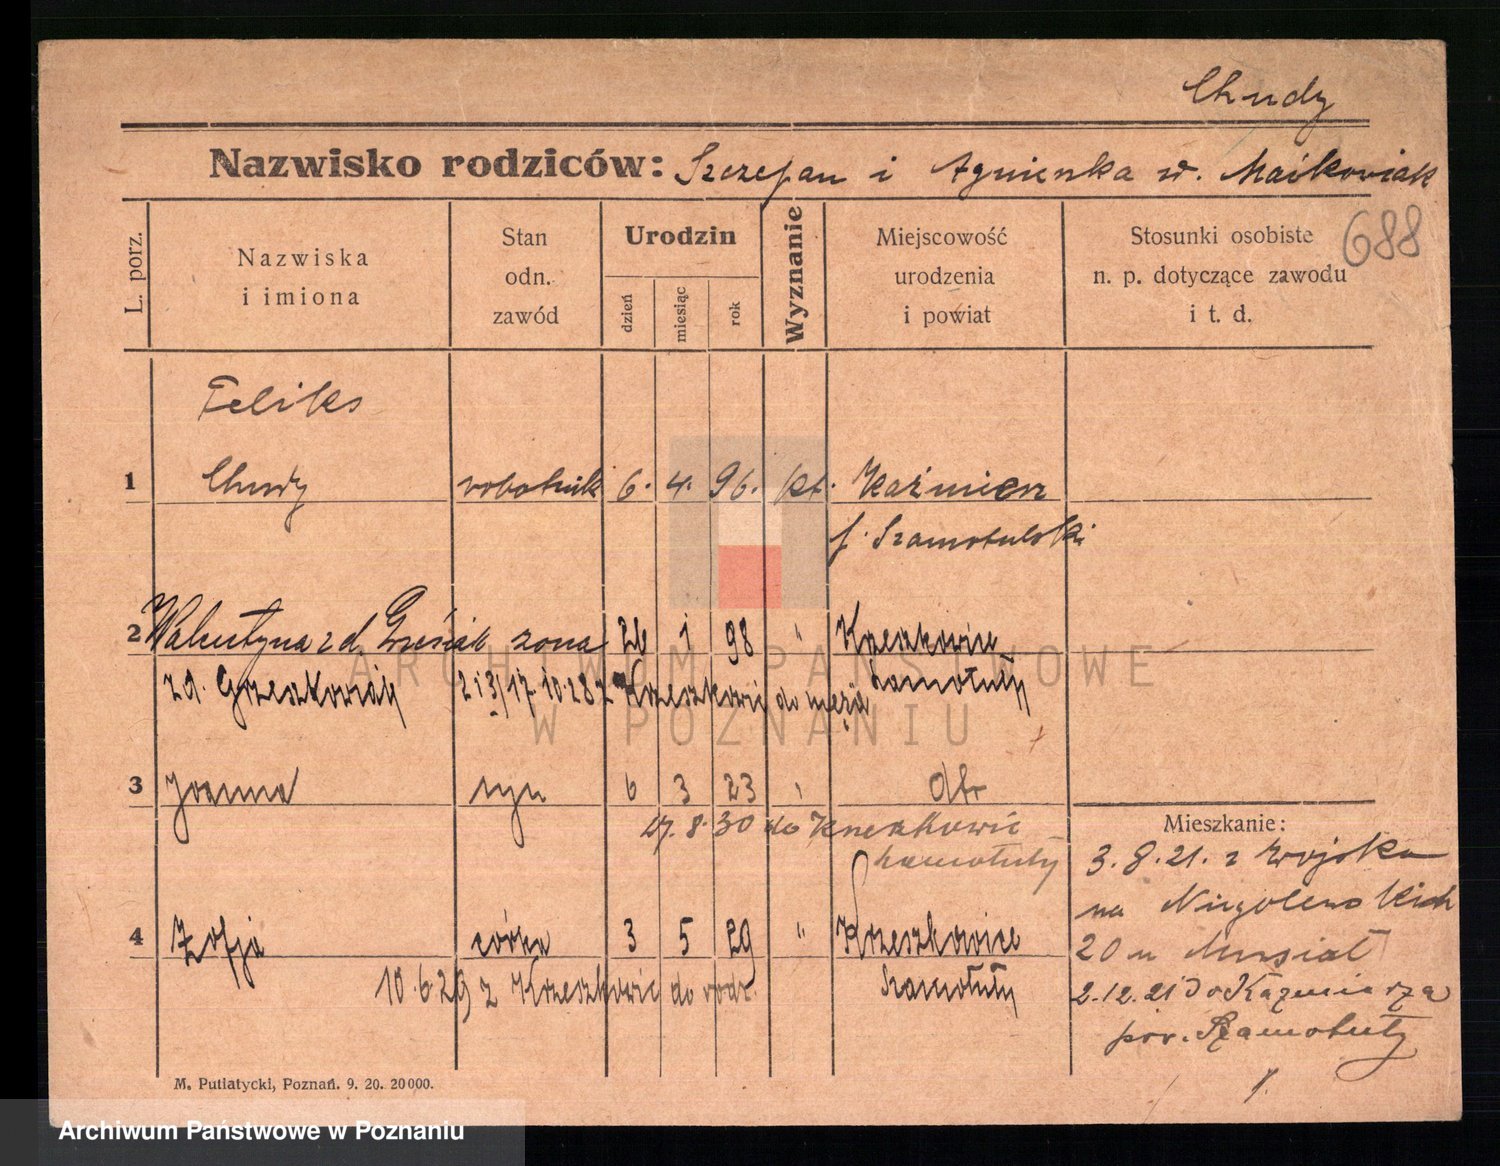 Chudy
Nazwisko rodziców: Szczepan i Agnieszka z d. Maćkowiak
688
L. porz.
Nazwiska
i imiona
Stan
odn.
zawód
Urodzin
dzień
miesiąc
rok
Wyznanie
Miejscowość
urodzenia
i powiat
Stosunki osobiste
n. p. dotyczące zawodu
i t. d.
Feliks
1 Chudy robotnik 6. 4. 96. kt. Kaźmierz
p. Szamotulski
2 Walentyna z d. Grześiak żona 26 1 98 " Krzeszkowice
Szamotuły
z d. Grzeszkowiak 17.10.28 z Krzeszkowic do męża
3 6 3 23 " dtr
17.8.30 do Krzeszkowic
Szamotuły
4 Zofja córka 3 5 29 " Krzeszkowice
Szamotuły
10.6.29 z Krzeszkowic do rodz.
Mieszkanie:
3.8.21. z wojska
na Niegolewskich
20 u Musiał
2.12.21 do Kaźmierza
pow. Szamotuły
M. Putiatycki, Poznań. 9. 20. 20000.
ARCHIWUM PAŃSTWOWE
W POZNANIU
Archiwum Państwowe w Poznaniu